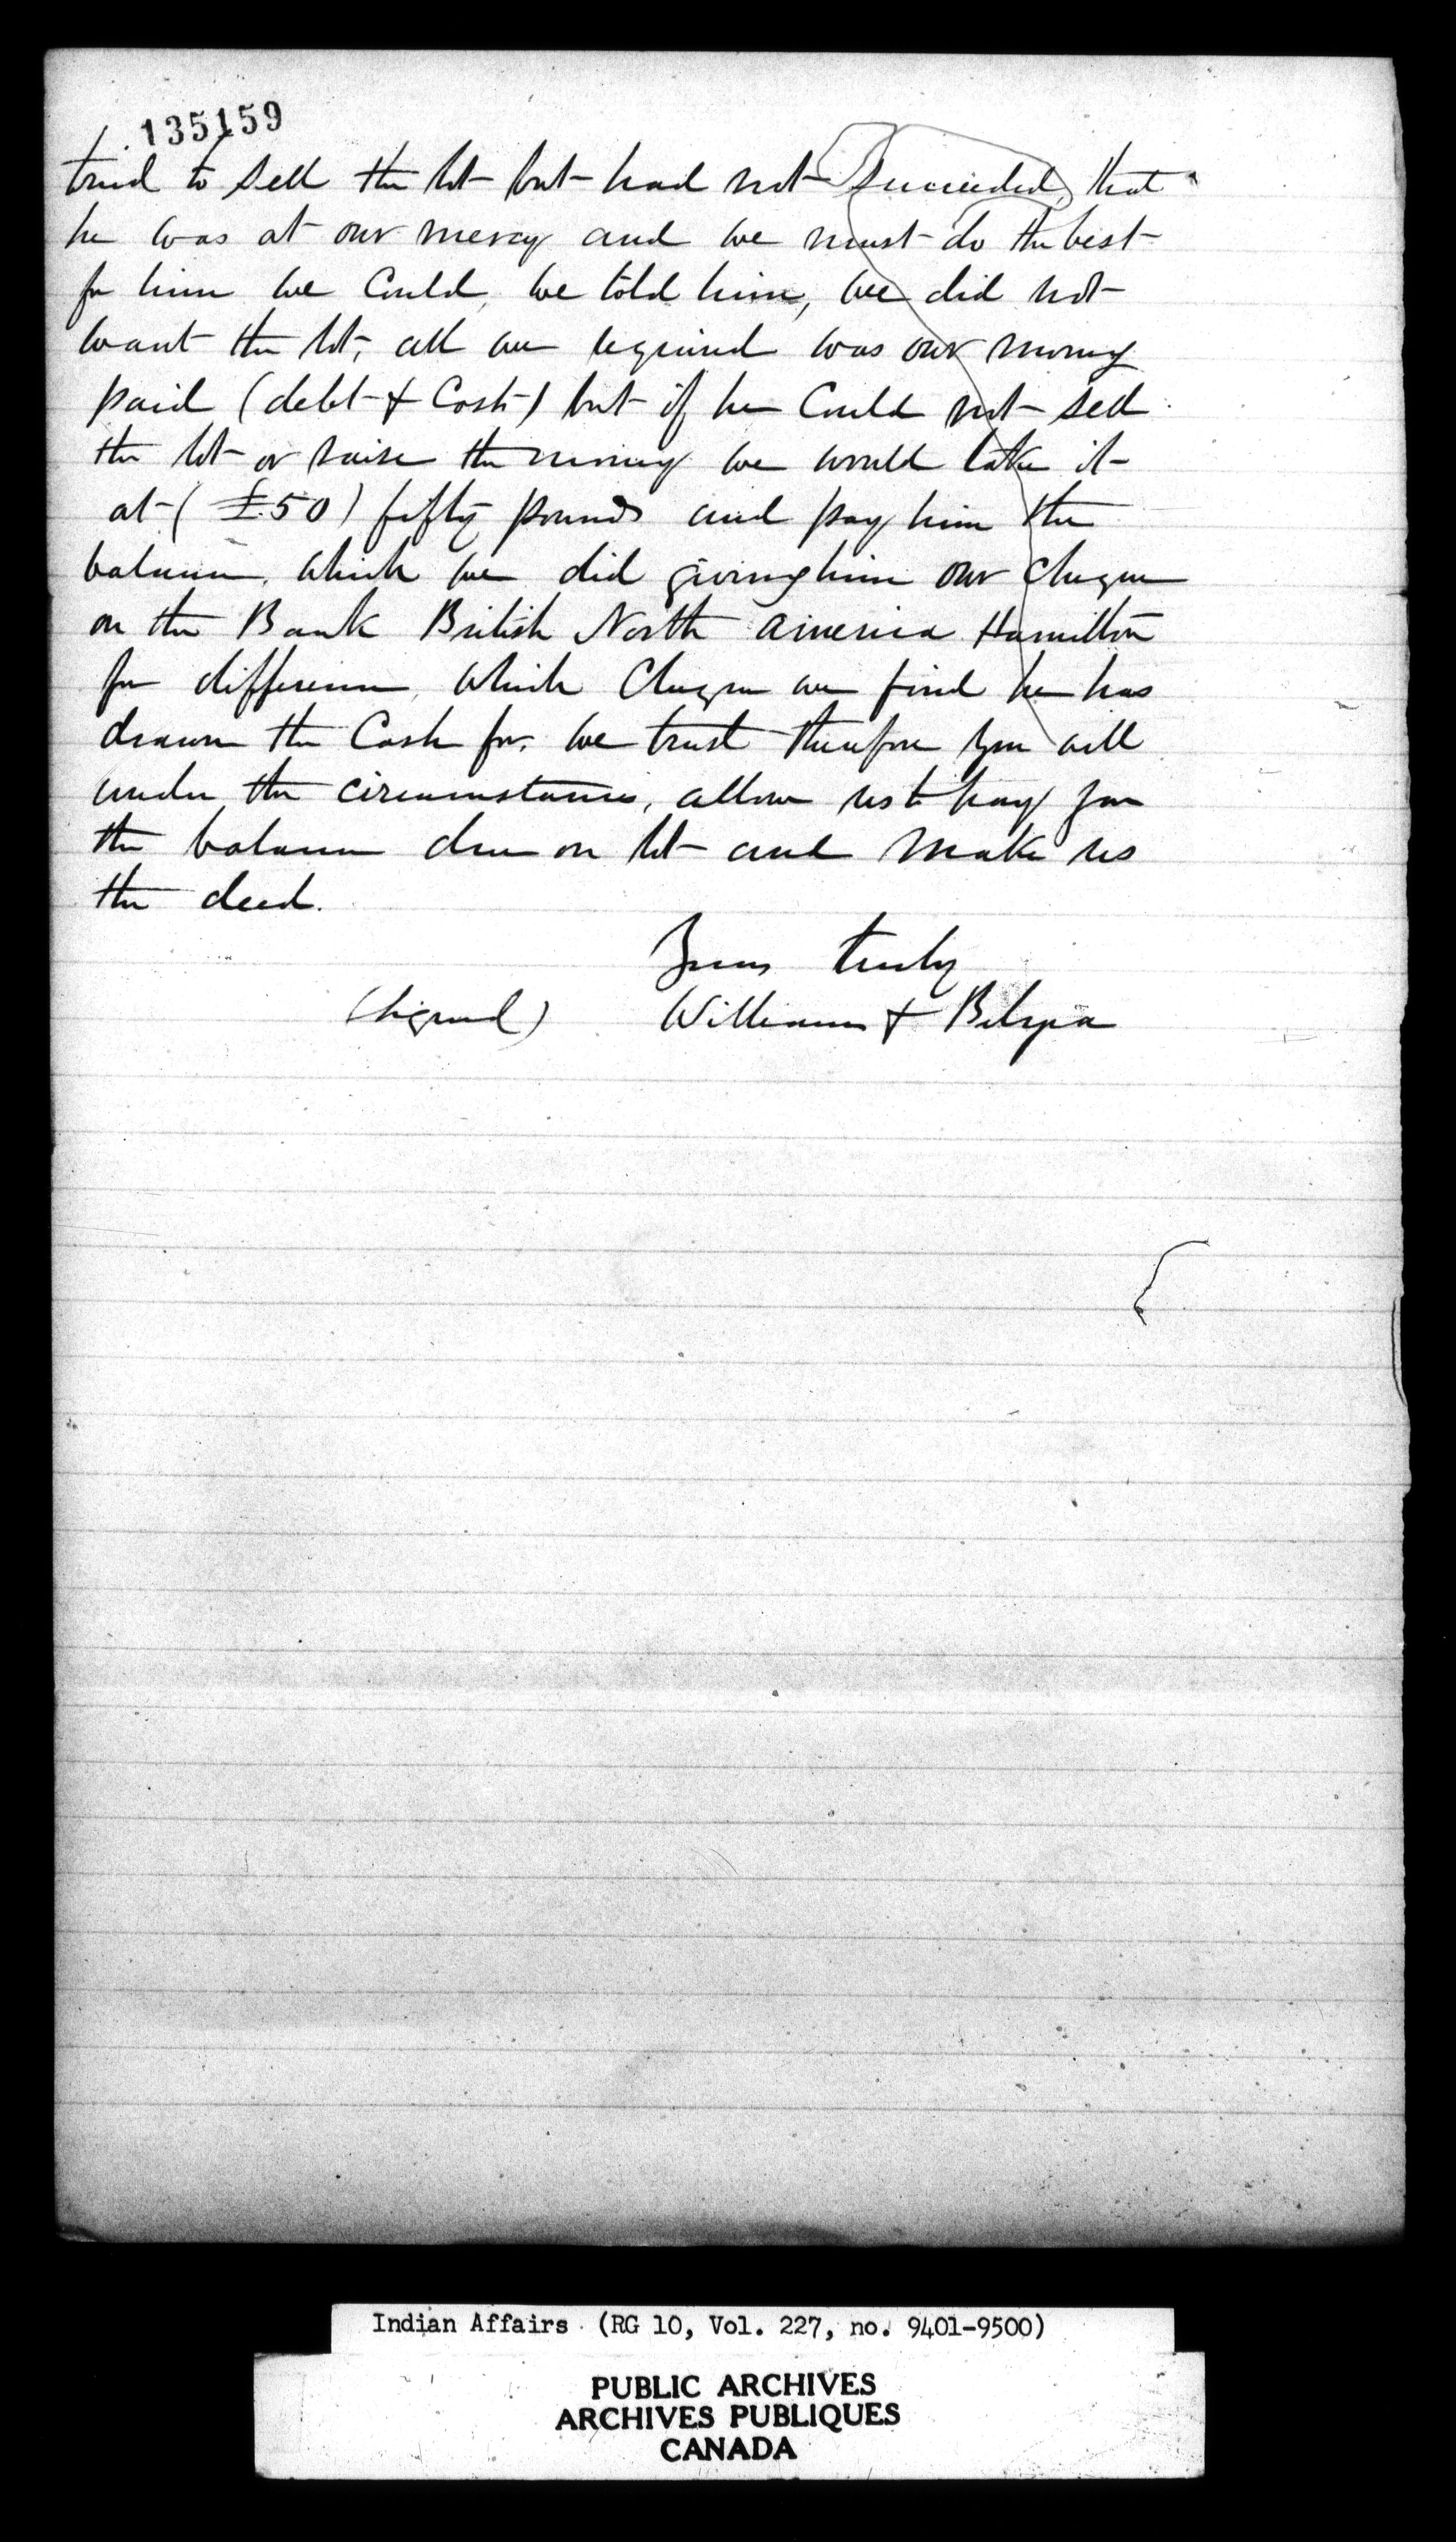 135159
tried to sell the lot but had not succeeded, that
he was at our mercy and we must do the best
for him we could, we told him, we did not
want the lot, all we required was our money
paid (debt & Cost) but if he Could not sell
the lot or raise the money we would take it
at (£50) fifty pounds and pay him the
balance, which we did giving him our cheque
on the Bank British North America Hamilton
for difference, which Cheque we find he has
drawn the Cash for. we trust therefore you will
under the circumstances, allow us to pay you
the balance due on lot and make us
the deed.
Yours truly
(Signed) Williams &
Indian Affairs (RG 10, Vol. 227, no. 9401-9500)
PUBLIC ARCHIVES
ARCHIVES PUBLIQUES
CANADA